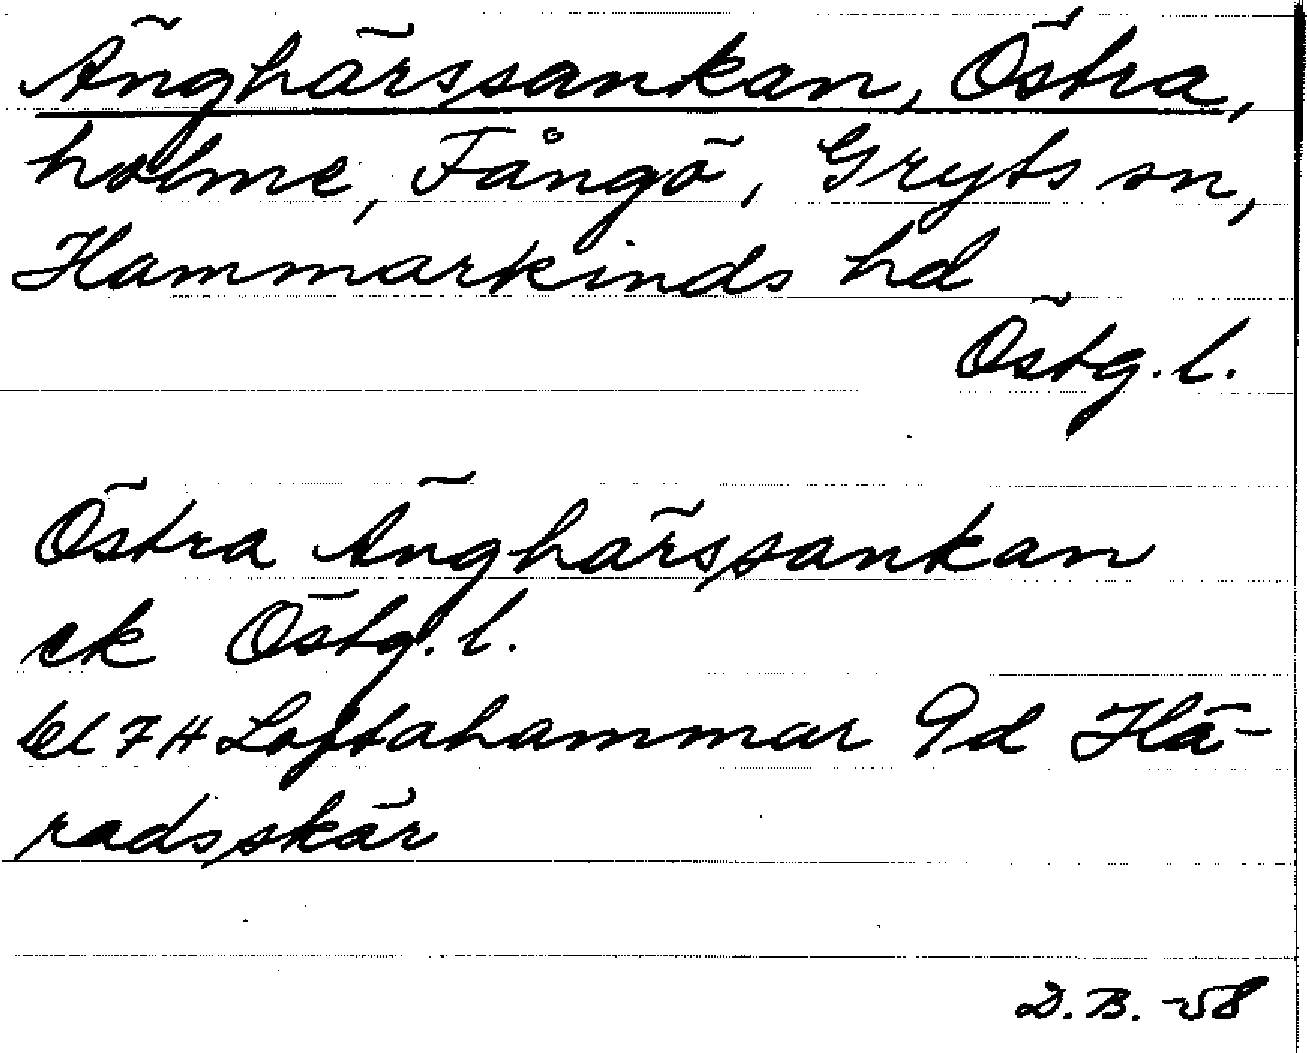 Änghärssankan, Östra,
holme, Fångö, Gryts sn,
Hammarkinds hd
Östg. l.
Östra Änghärssankan
ek Östg. l.
bl 7 H Loftahammar 9d Hä-
radsskär
D.B. -58